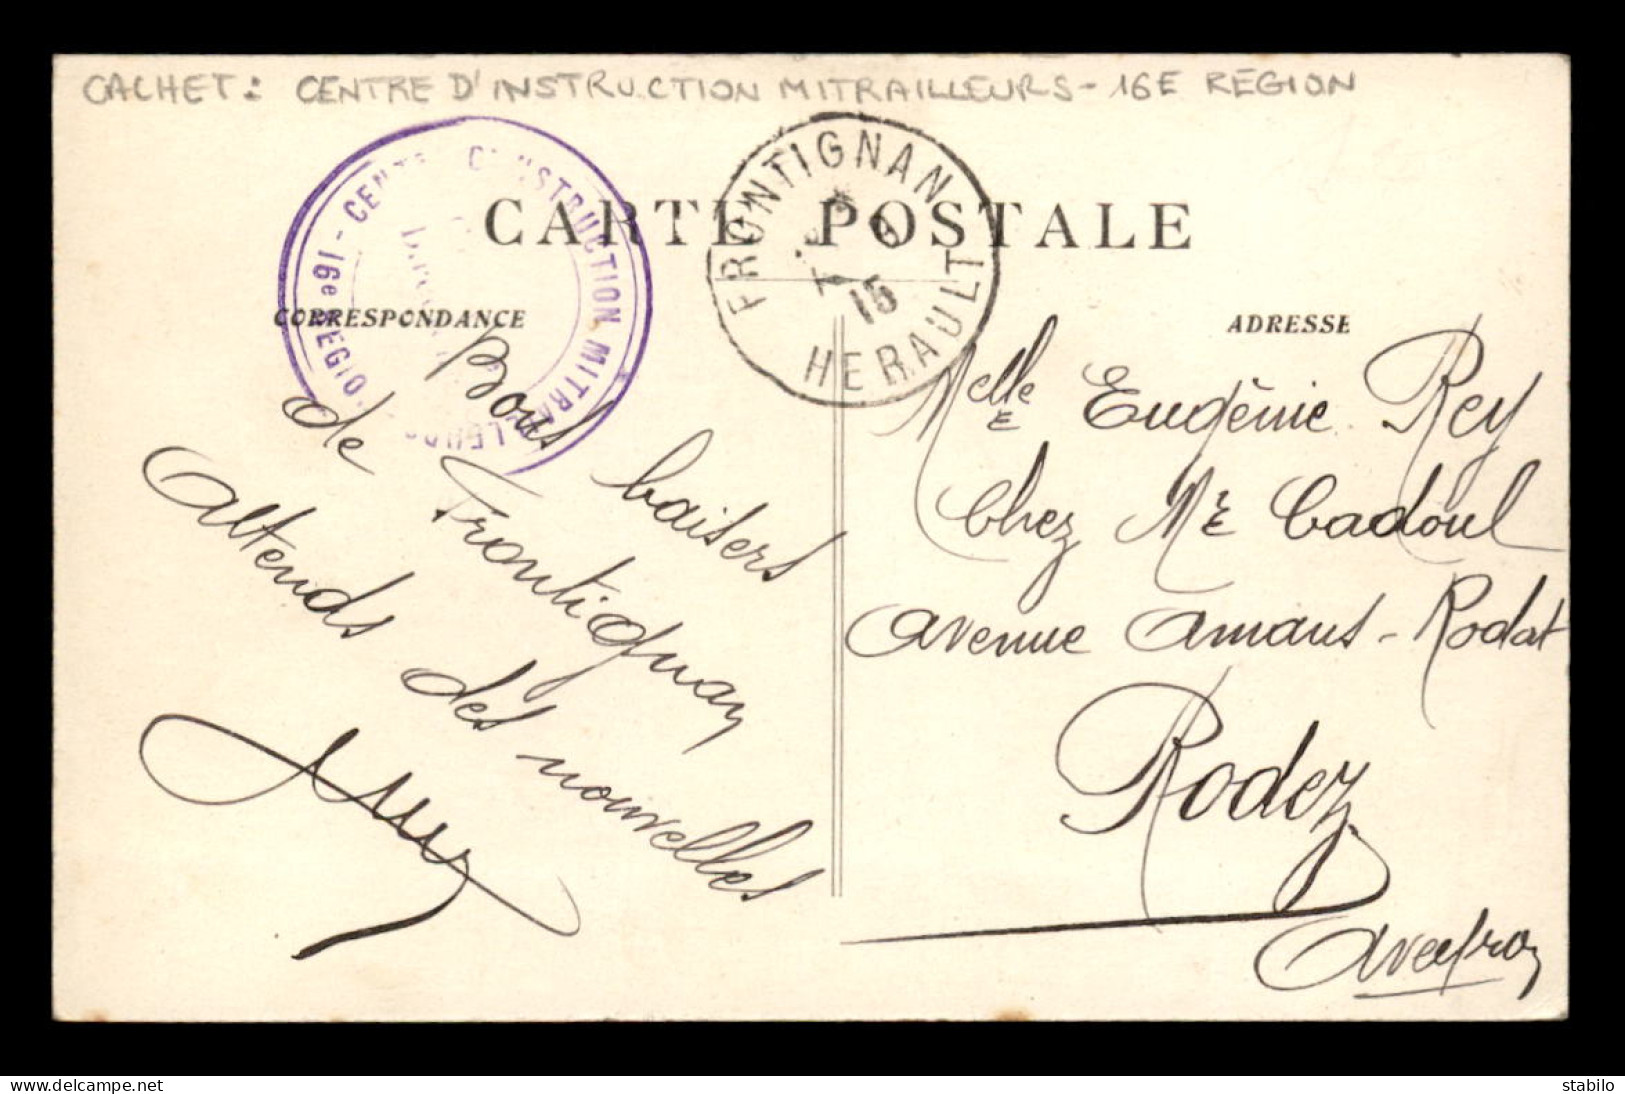 CACHET : CENTRE D'INSTRUCTION MITRAILLEURS - 16E REGION
16e REGION - CENTRE D'INSTRUCTION MITRAILLEURS
FRONTIGNAN
6
15
HERAULT
CARTE POSTALE
CORRESPONDANCE
ADRESSE
Bons baisers
de Frontignan
Attends des nouvelles
Melle Eugénie Rey
Chez Me Cadoul
Avenue Amans-Rodat
Rodez
Aveyron
www.delcampe.net
stabilo